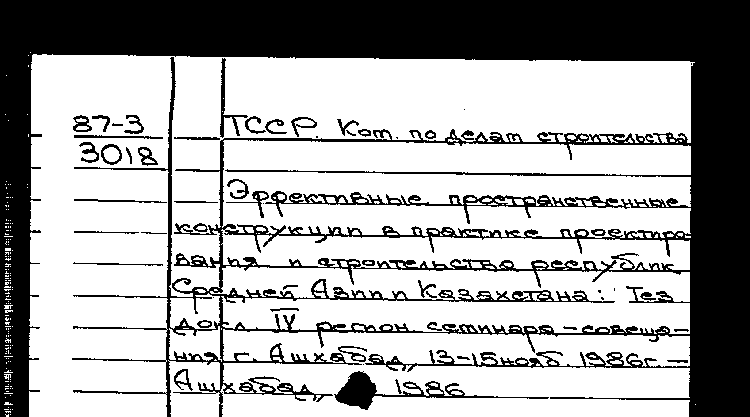 87-3 ТССР. Ком. по делам строительства
3018
Эффективные пространственные
конструкции в практике проектиро-
вания и строительства республик
Средней Азии и Казахстана: Тез.
докл. IV регион. семинара-совеща-
ния г. Ашхабад, 13-15 нояб. 1986г. —
Ашхабад, 1986.